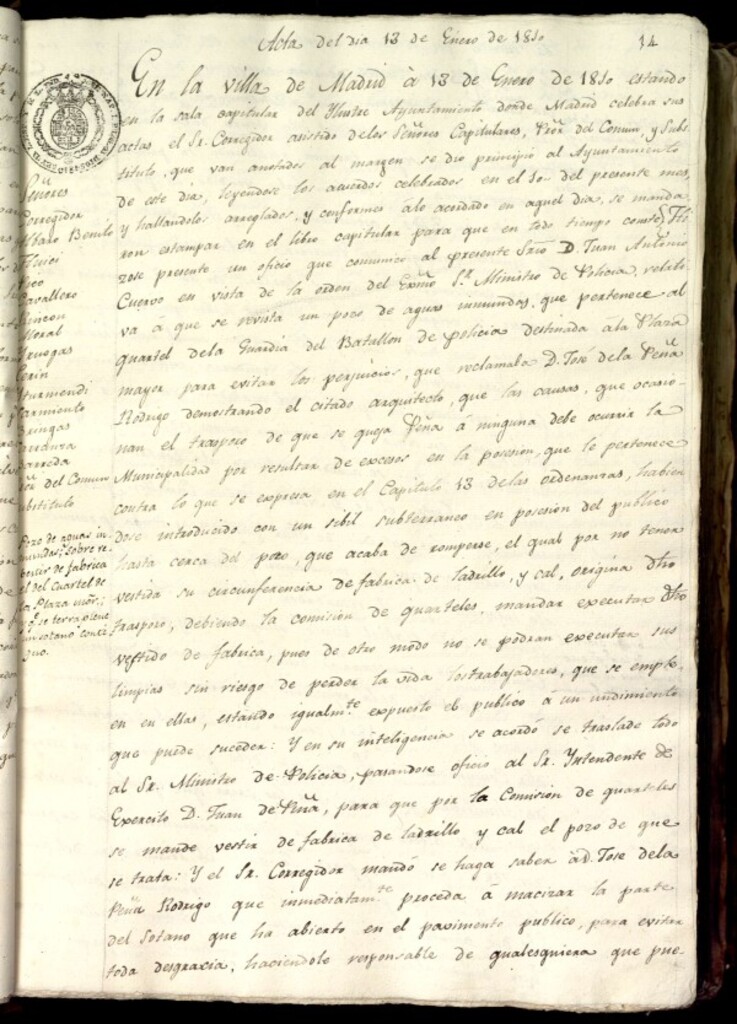 Acta del dia 13 de Enero de 1810
14
En la villa de Madrid à 13 de Enero de 1810 estando
en la sala capitular del Ylustre Ayuntamiento donde Madrid celebra sus
actas el Sr. Corregidor asistido delos Señores Capitulares, Prór del Comun, y Subs-
tituto, que van anotados al margen se dio principio al Ayuntamiento
de este dia, leyendose los acuerdos celebrados en el 10 del presente mes,
y hallandolos arreglados, y conformes álo acordado en aquel dia, se manda-
ron estampar en el libro capitular para que en todo tiempo conste; Hi-
zose presente un oficio que comunico al presente Srio D. Juan Antonio
Cuervo en vista de la orden del Exmo Sr. Ministro de Policia, relati-
va á que se revista un pozo de aguas inmundas, que pertenece al
quartel dela Guardia del Batallon de policia destinada ála Plaza
mayor para evitar los perjuicios, que reclamaba D. José dela Peña
Rodrigo demostrando el citado arquitecto, que las causas, que ocasio-
nan el trasporo de que se queja Peña á ninguna debe ocurrir la
Municipalidad por resultar de excesos en la posesion, que le pertenece
contra lo que se expresa en el Capitulo 13 delas ordenanzas, habien
dose introducido con un sibil subterraneo en posesion del publico
hasta cerca del pozo, que acaba de romperse, el qual por no tener
vestida su circunferencia de fabrica de ladrillo, y cal, origina dho
trasporo, debiendo la comision de quarteles, mandar executar dho
vestido de fabrica, pues de otro modo no se podran executar sus
limpias sin riesgo de perder la vida lostrabajadores, que se emple-
en en ellas, estando igualmte expuesto el publico á un undimiento
que puede suceder: Y en su inteligencia se acordó se traslade todo
al Sr. Ministro de Policia, pasandose oficio al Sr. Yntendente de
Exercito D. Juan de Piña, para que por la Comision de quarteles
se mande vestir de fabrica de ladrillo y cal el pozo de que
se trata: Y el Sr. Corregidor mandó se haga saber áD. Jose dela
Peña Rodrigo que inmediatamte proceda á macizar la parte
del Sotano que ha abierto en el pavimento publico, para evitar
toda desgracia, haciendole responsable de qualesquiera que pue-
Señores
Corregidor
Alvaro Benito
Cavallero
Rincon
Moral
Yturmendi
Sarmiento
Bringas
del Comun
Substituto
Pozo de aguas in-
mundas; sobre re-
bestir de fabrica
el del cuartel de
la Plaza mor;
y qe se terraplene
un sotano conti-
guo.